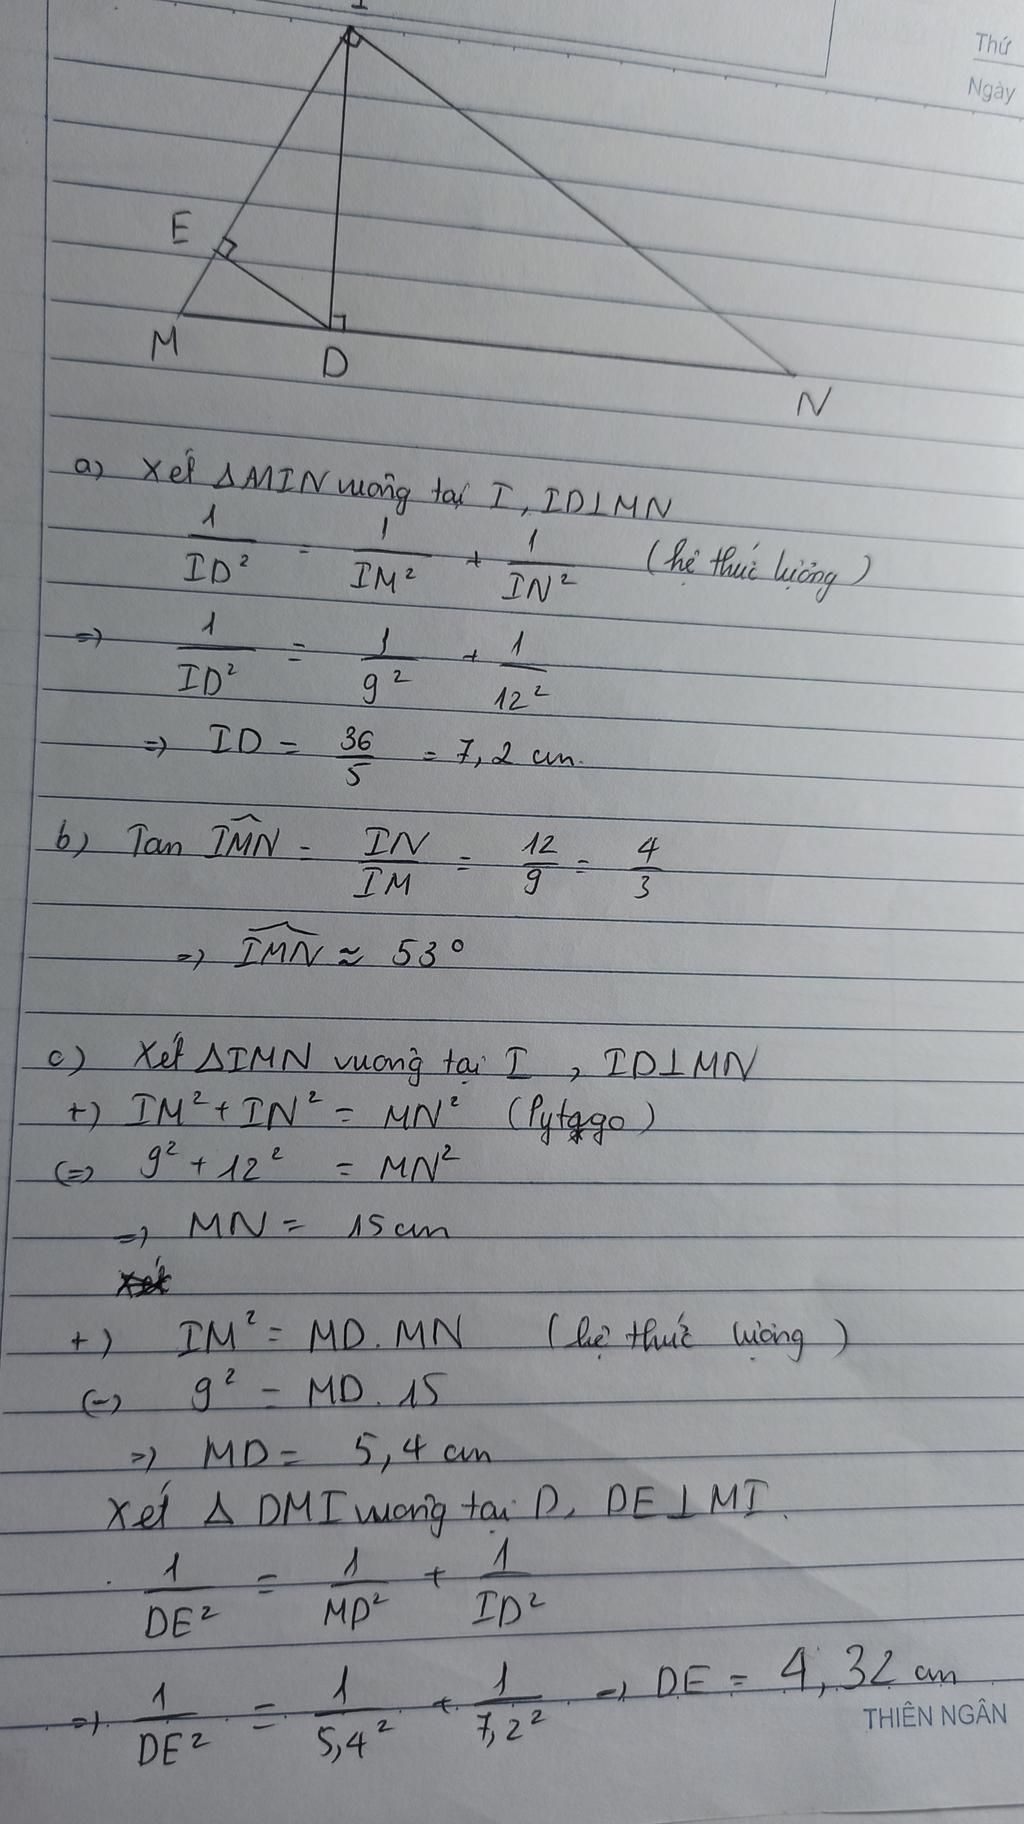 I
Thứ
Ngày
E
M
D
N
a) Xét ΔMIN vuông tại I, ID⊥MN
1/ID² = 1/IM² + 1/IN² (hệ thức lượng)
=> 1/ID² = 1/9² + 1/12²
=> ID = 36/5 = 7,2 cm.
b) Tan IMN^ = IN/IM = 12/9 = 4/3
=> IMN^ ≈ 53°
c) Xét ΔIMN vuông tại I, ID⊥MN
+) IM² + IN² = MN² (Pytago)
(=) 9² + 12² = MN²
=> MN = 15 cm
+) IM² = MD. MN (hệ thức lượng)
(=) 9² = MD. 15
=> MD = 5,4 cm
Xét Δ DMI vuông tại D, DE⊥MI.
1/DE² = 1/MD² + 1/ID²
=> 1/DE² = 1/5,4² + 1/7,2² => DE = 4,32 cm
THIÊN NGÂN